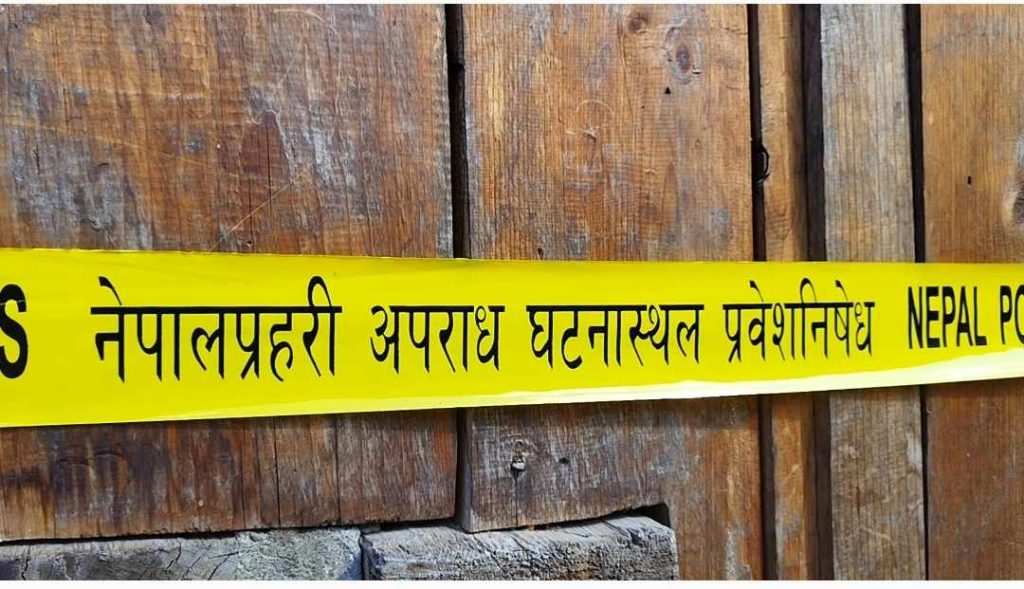 S नेपालप्रहरी अपराध घटनास्थल प्रवेशनिषेध NEPAL PO